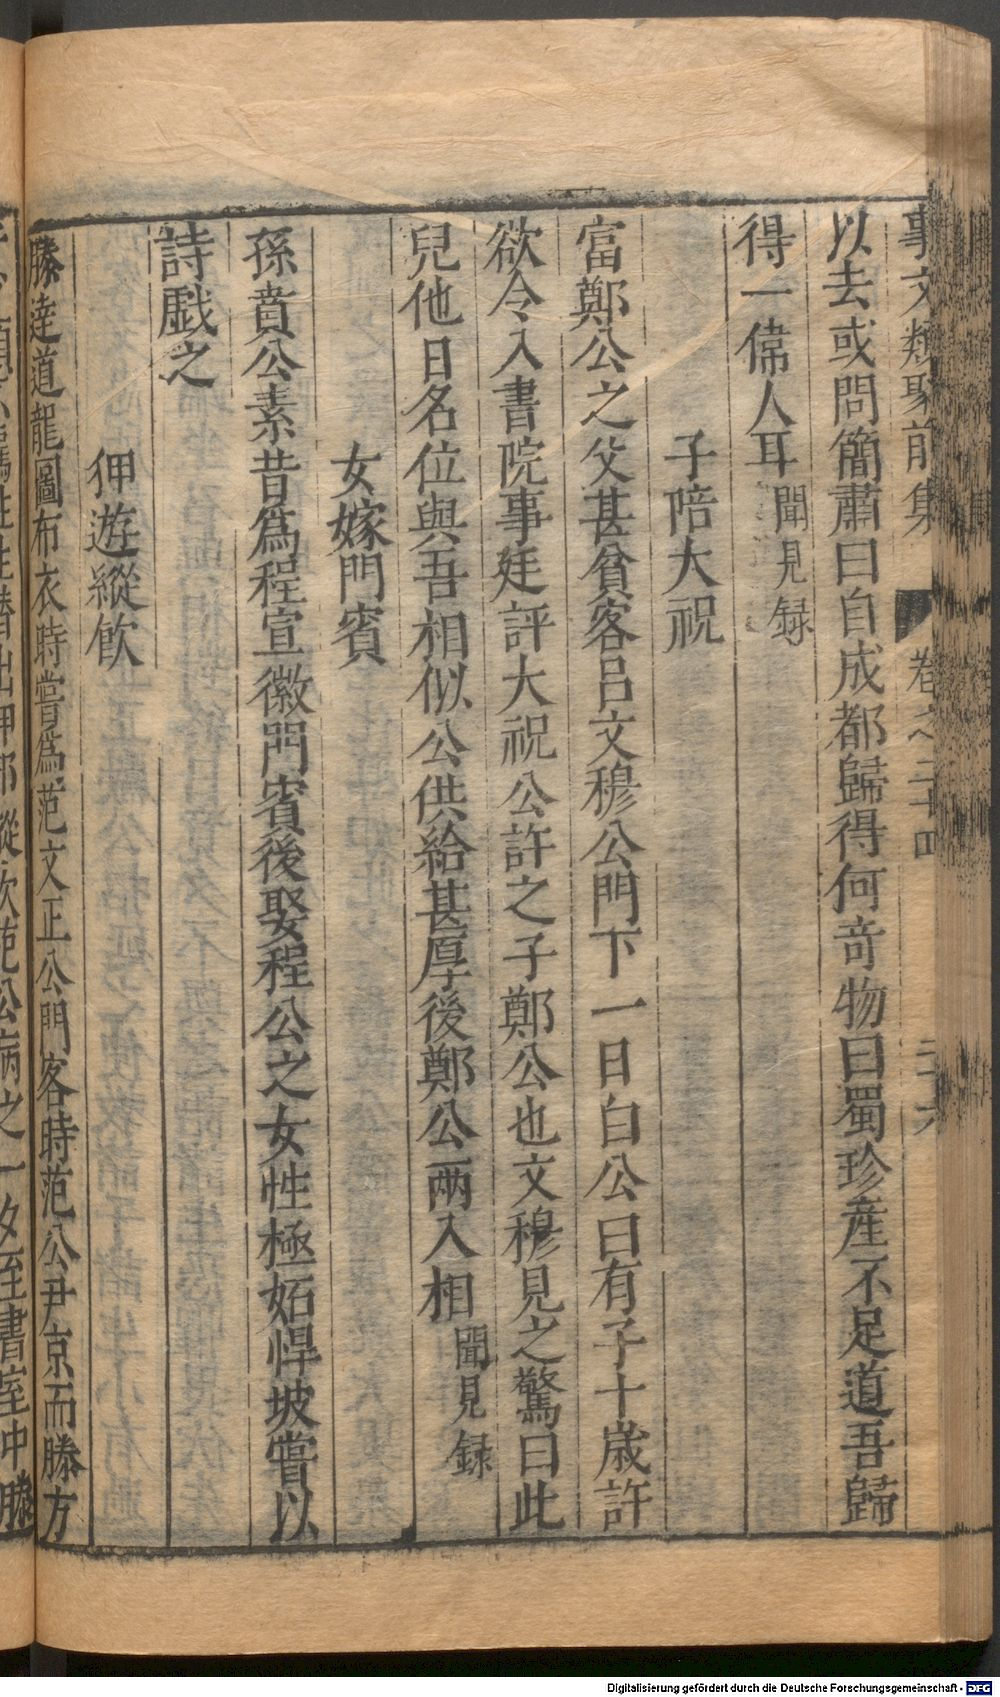 事文類聚前集
卷之三十四
二十六
以去或問簡肅曰自成都歸得何竒物曰蜀珍産不足道吾歸
得一偉人耳聞見録
子陪大祝
富鄭公之父甚貧客呂文穆公門下一日白公曰有子十歲許
欲令入書院事廷評大祝公許之子鄭公也文穆見之驚曰此
兒他日名位與吾相似公供給甚厚後鄭公兩入相聞見録
女嫁門賓
孫賁公素昔爲程宣徽門賓後娶程公之女性極妬悍坡嘗以
詩戯之
狎遊縱飲
滕達道龍圖布衣時嘗爲范文正公門客時范公尹京而滕方
出狎邪縱飲范公病之一夕至書室中滕
Digitalisierung gefördert durch die Deutsche Forschungsgemeinschaft - DFG